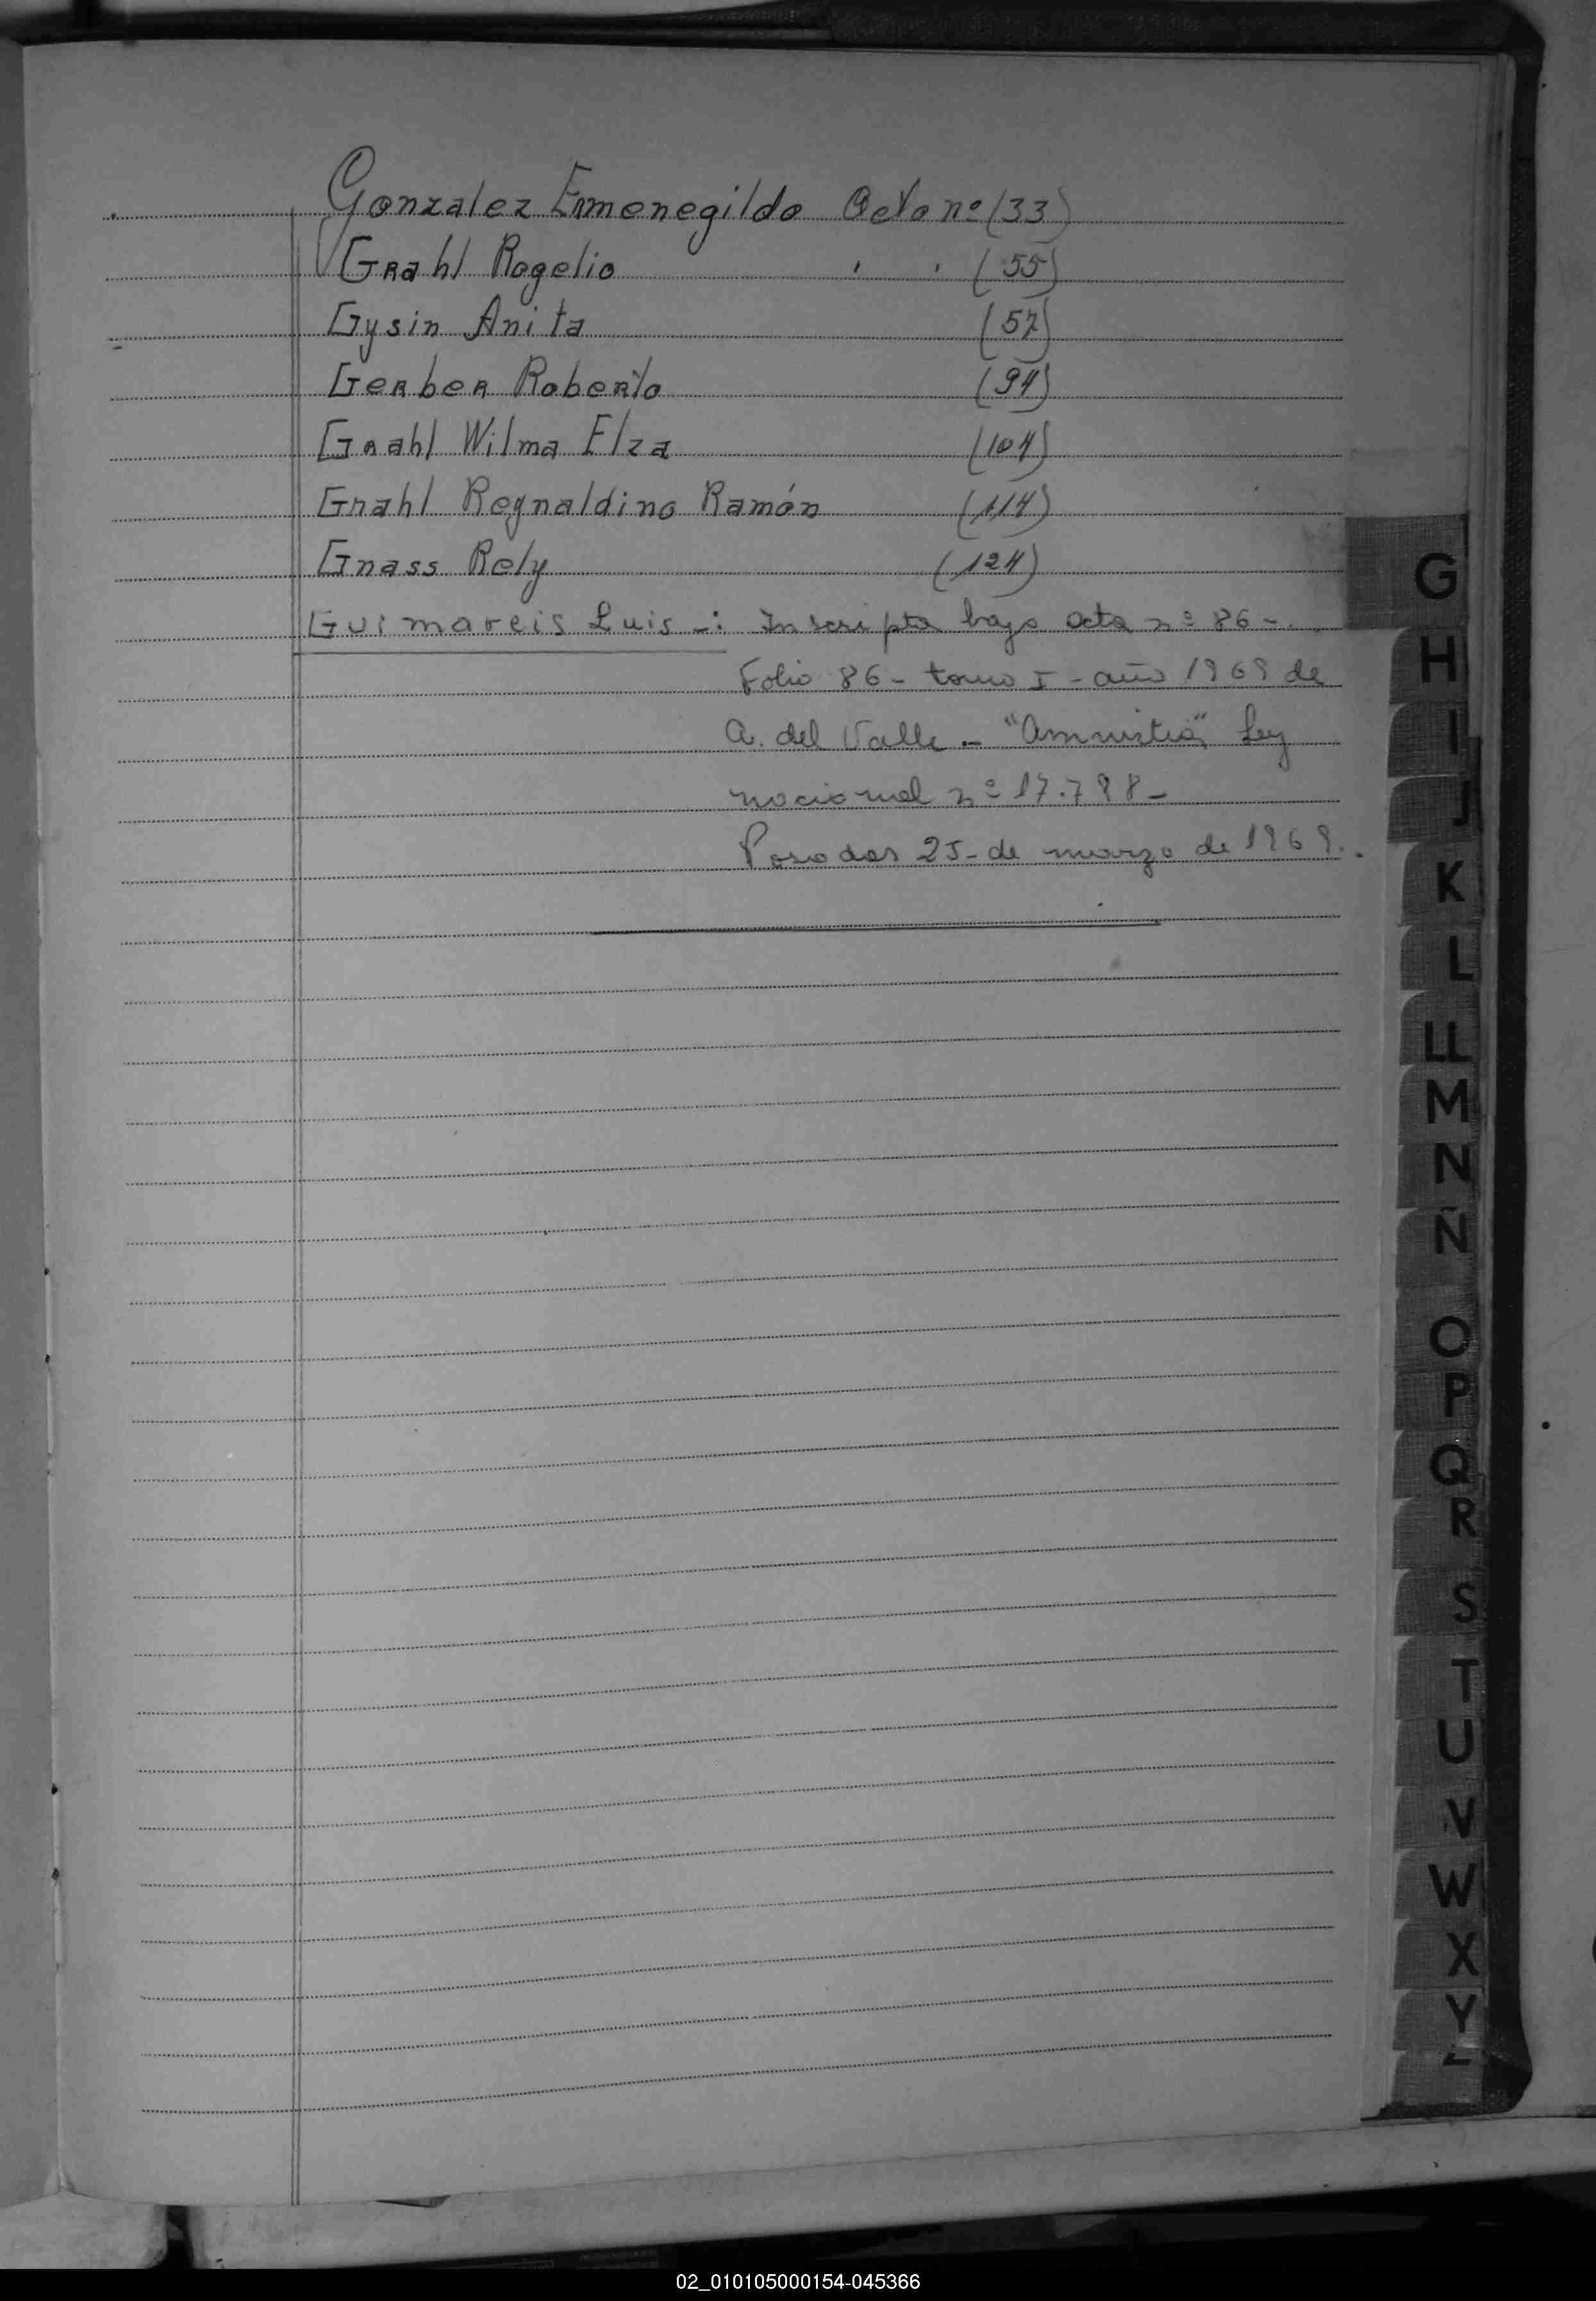 Gonzalez Ermenegildo Acta nº (33)
Grahl Rogelio " " (55)
Gysin Anita (57)
Gerber Roberto (94)
Grahl Wilma Elza (104)
Grahl Reynaldino Ramón (114)
Gnass Rely (124)
Guimareis Luis -: Inscripta bajo acta nº 86 -
Folio 86 - tomo I - año 1969 de
A. del Valle - "Amnistia" Ley
nacional nº 17.798 -
Posadas 25 - de marzo de 1969.
G
H
I
J
K
L
LL
M
N
Ñ
O
P
Q
R
S
T
U
V
W
X
Y
Z
02_010105000154-045366